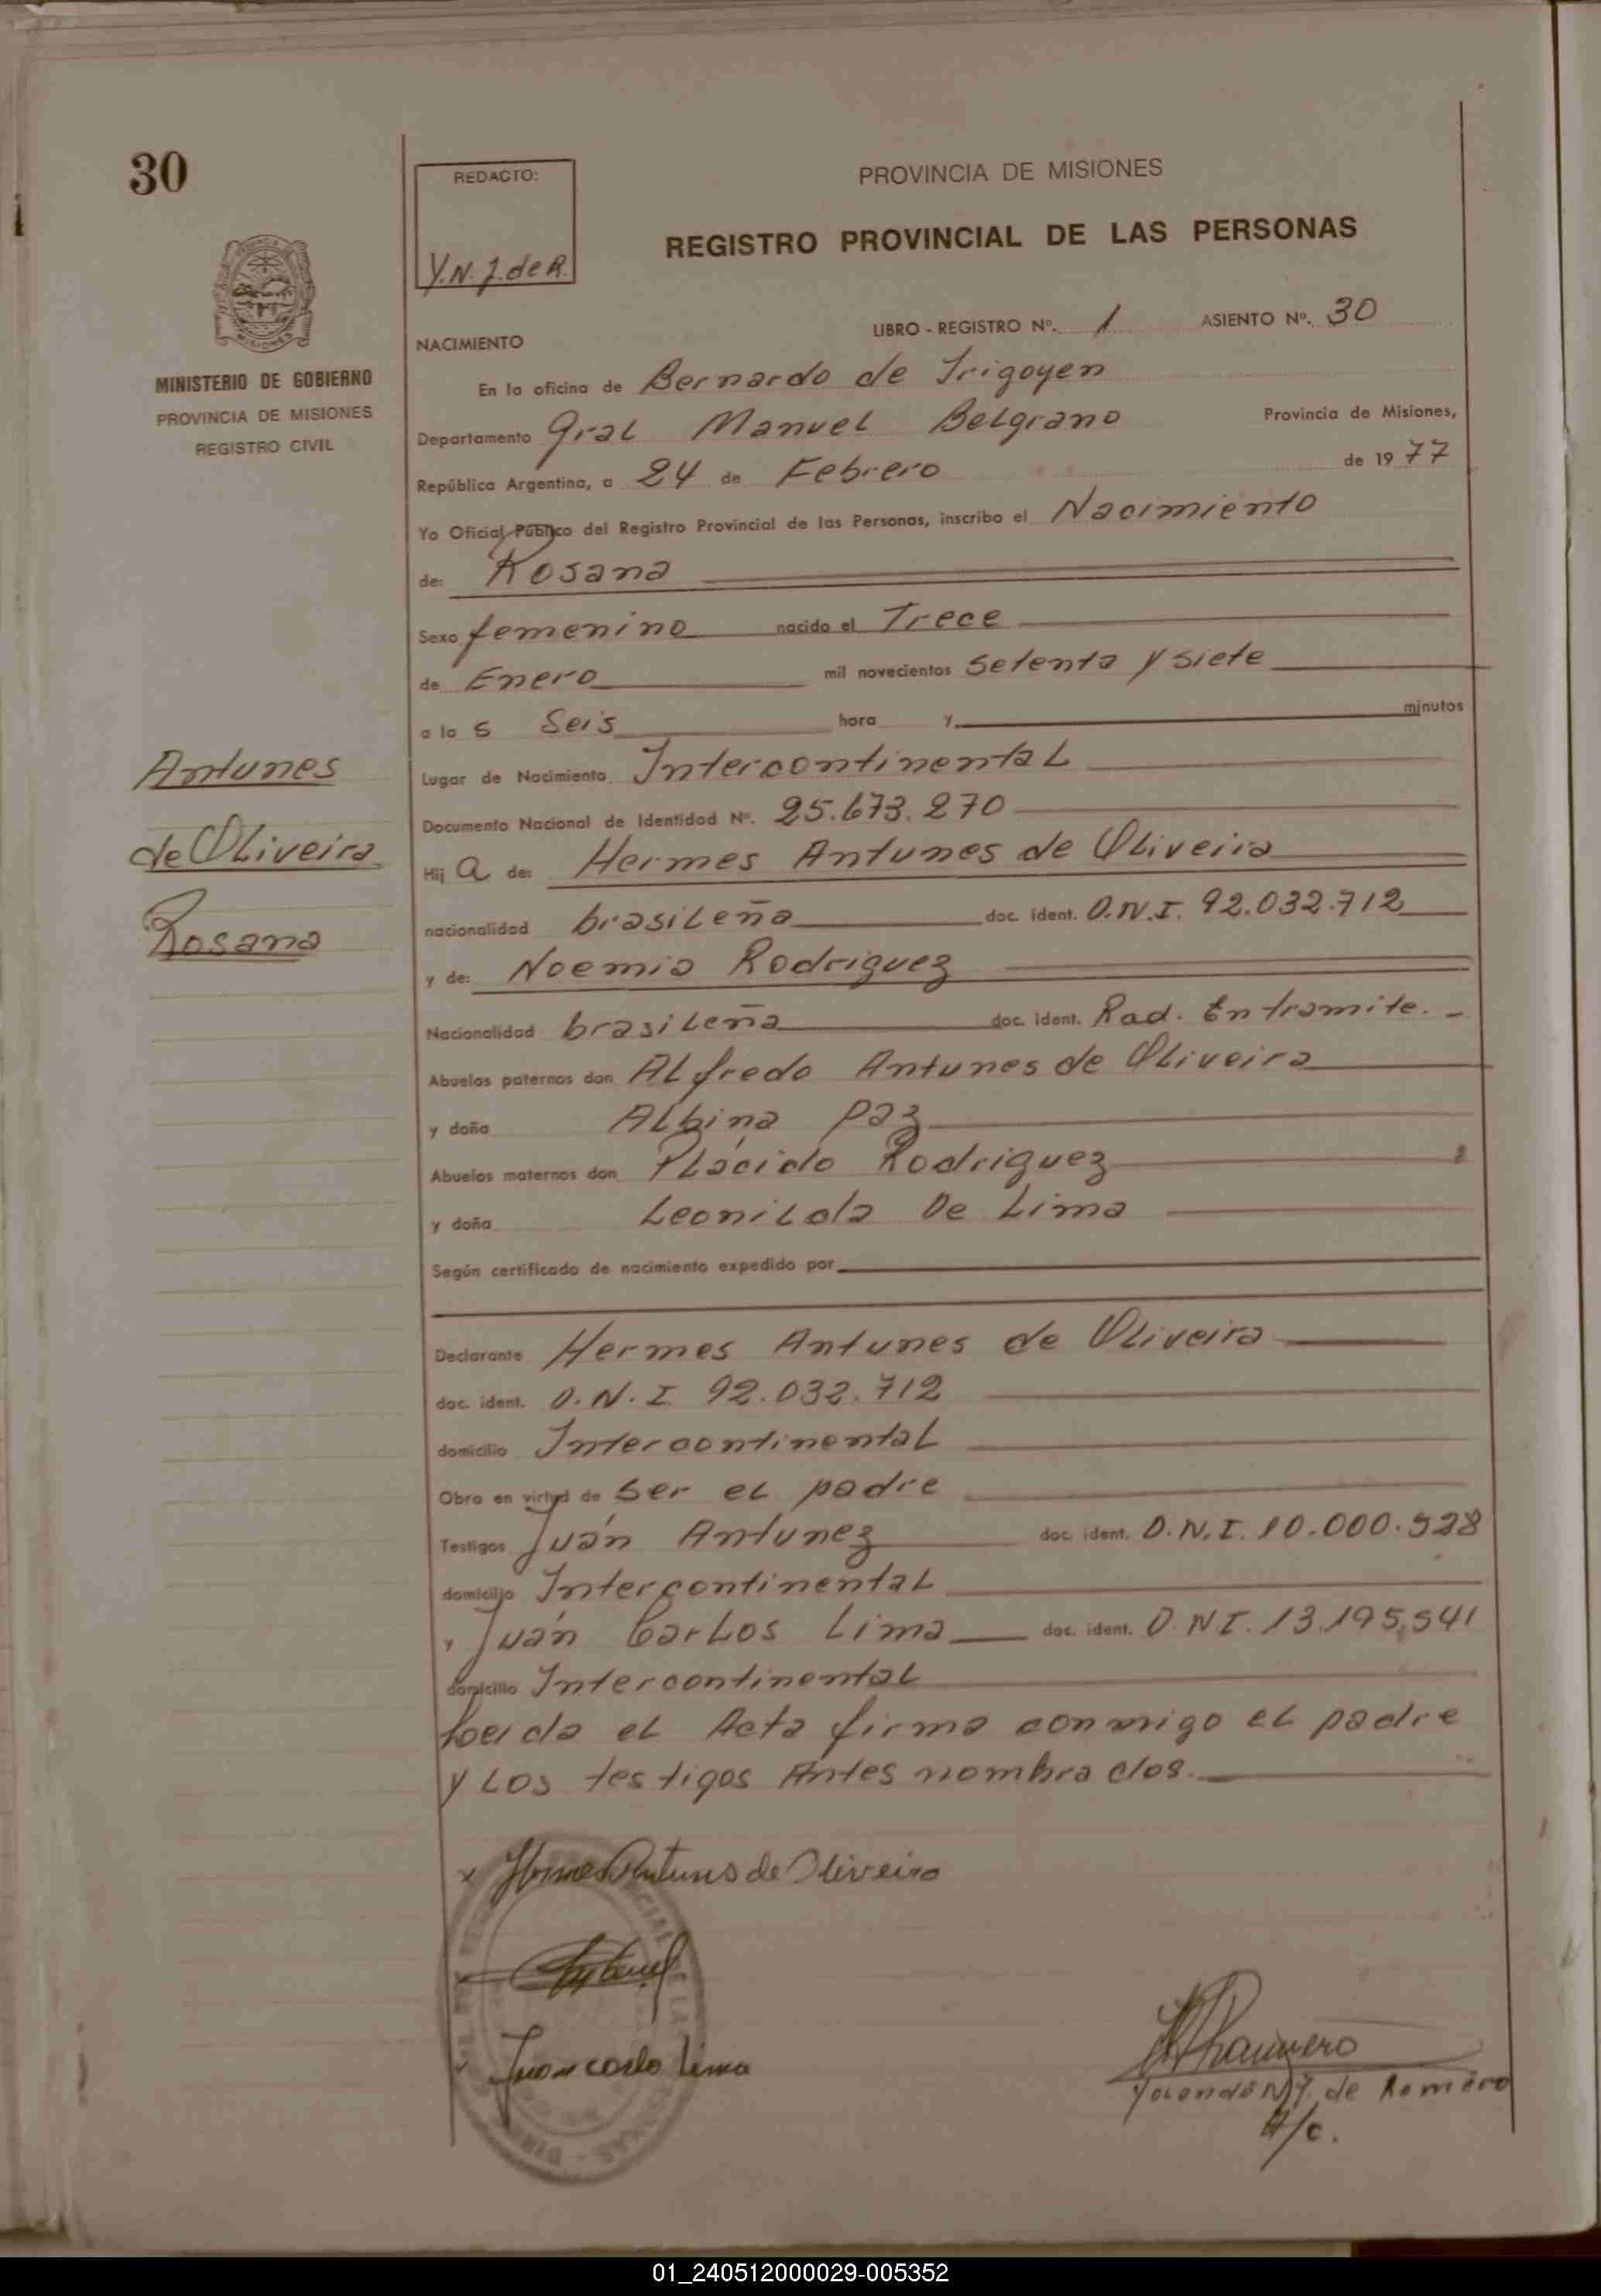 30
REDACTO:
Y.N. J. de R.
PROVINCIA DE MISIONES
REGISTRO PROVINCIAL DE LAS PERSONAS
MISIONES
MINISTERIO DE GOBIERNO
PROVINCIA DE MISIONES
REGISTRO CIVIL
LIBRO - REGISTRO Nº. 1 ASIENTO Nº. 30
NACIMIENTO
En la oficina de Bernardo de Irigoyen
Departamento Gral Manuel Belgrano Provincia de Misiones,
República Argentina, a 24 de Febrero de 1977
Yo Oficial Público del Registro Provincial de las Personas, inscribo el Nacimiento
de: Rosana
Sexo femenino nacido el Trece
de Enero mil novecientos setenta y siete
a la s Seis hora y minutos
Lugar de Nacimiento Intercontinental
Documento Nacional de Identidad Nº. 25.673.270
Hij a de: Hermes Antunes de Oliveira
nacionalidad brasileña doc. ident. D.N.I. 92.032.712
y de: Noemia Rodriguez
Nacionalidad brasileña doc. ident. Rad. En tramite. -
Abuelos paternos don Alfredo Antunes de Oliveira
y doña Albina Paz
Abuelos maternos don Plácido Rodriguez
y doña Leonilda De Lima
Según certificado de nacimiento expedido por
Declarante Hermes Antunes de Oliveira
doc. ident. D.N.I. 92.032.712
domicilio Intercontinental
Obra en virtud de ser el padre
Testigos Juán Antunez doc. ident. D.N.I. 10.000.528
domicilio Intercontinental
y Juán Carlos Lima doc. ident. D.N.I. 13.195.541
domicilio Intercontinental
Leida el Acta firma conmigo el padre
y los testigos Antes nombrados.
Antunes
de Oliveira
Rosana
x Hermes Antunes de Oliveira
Juan carlo Lima
N. J. de Romero
A/c.
01_240512000029-005352